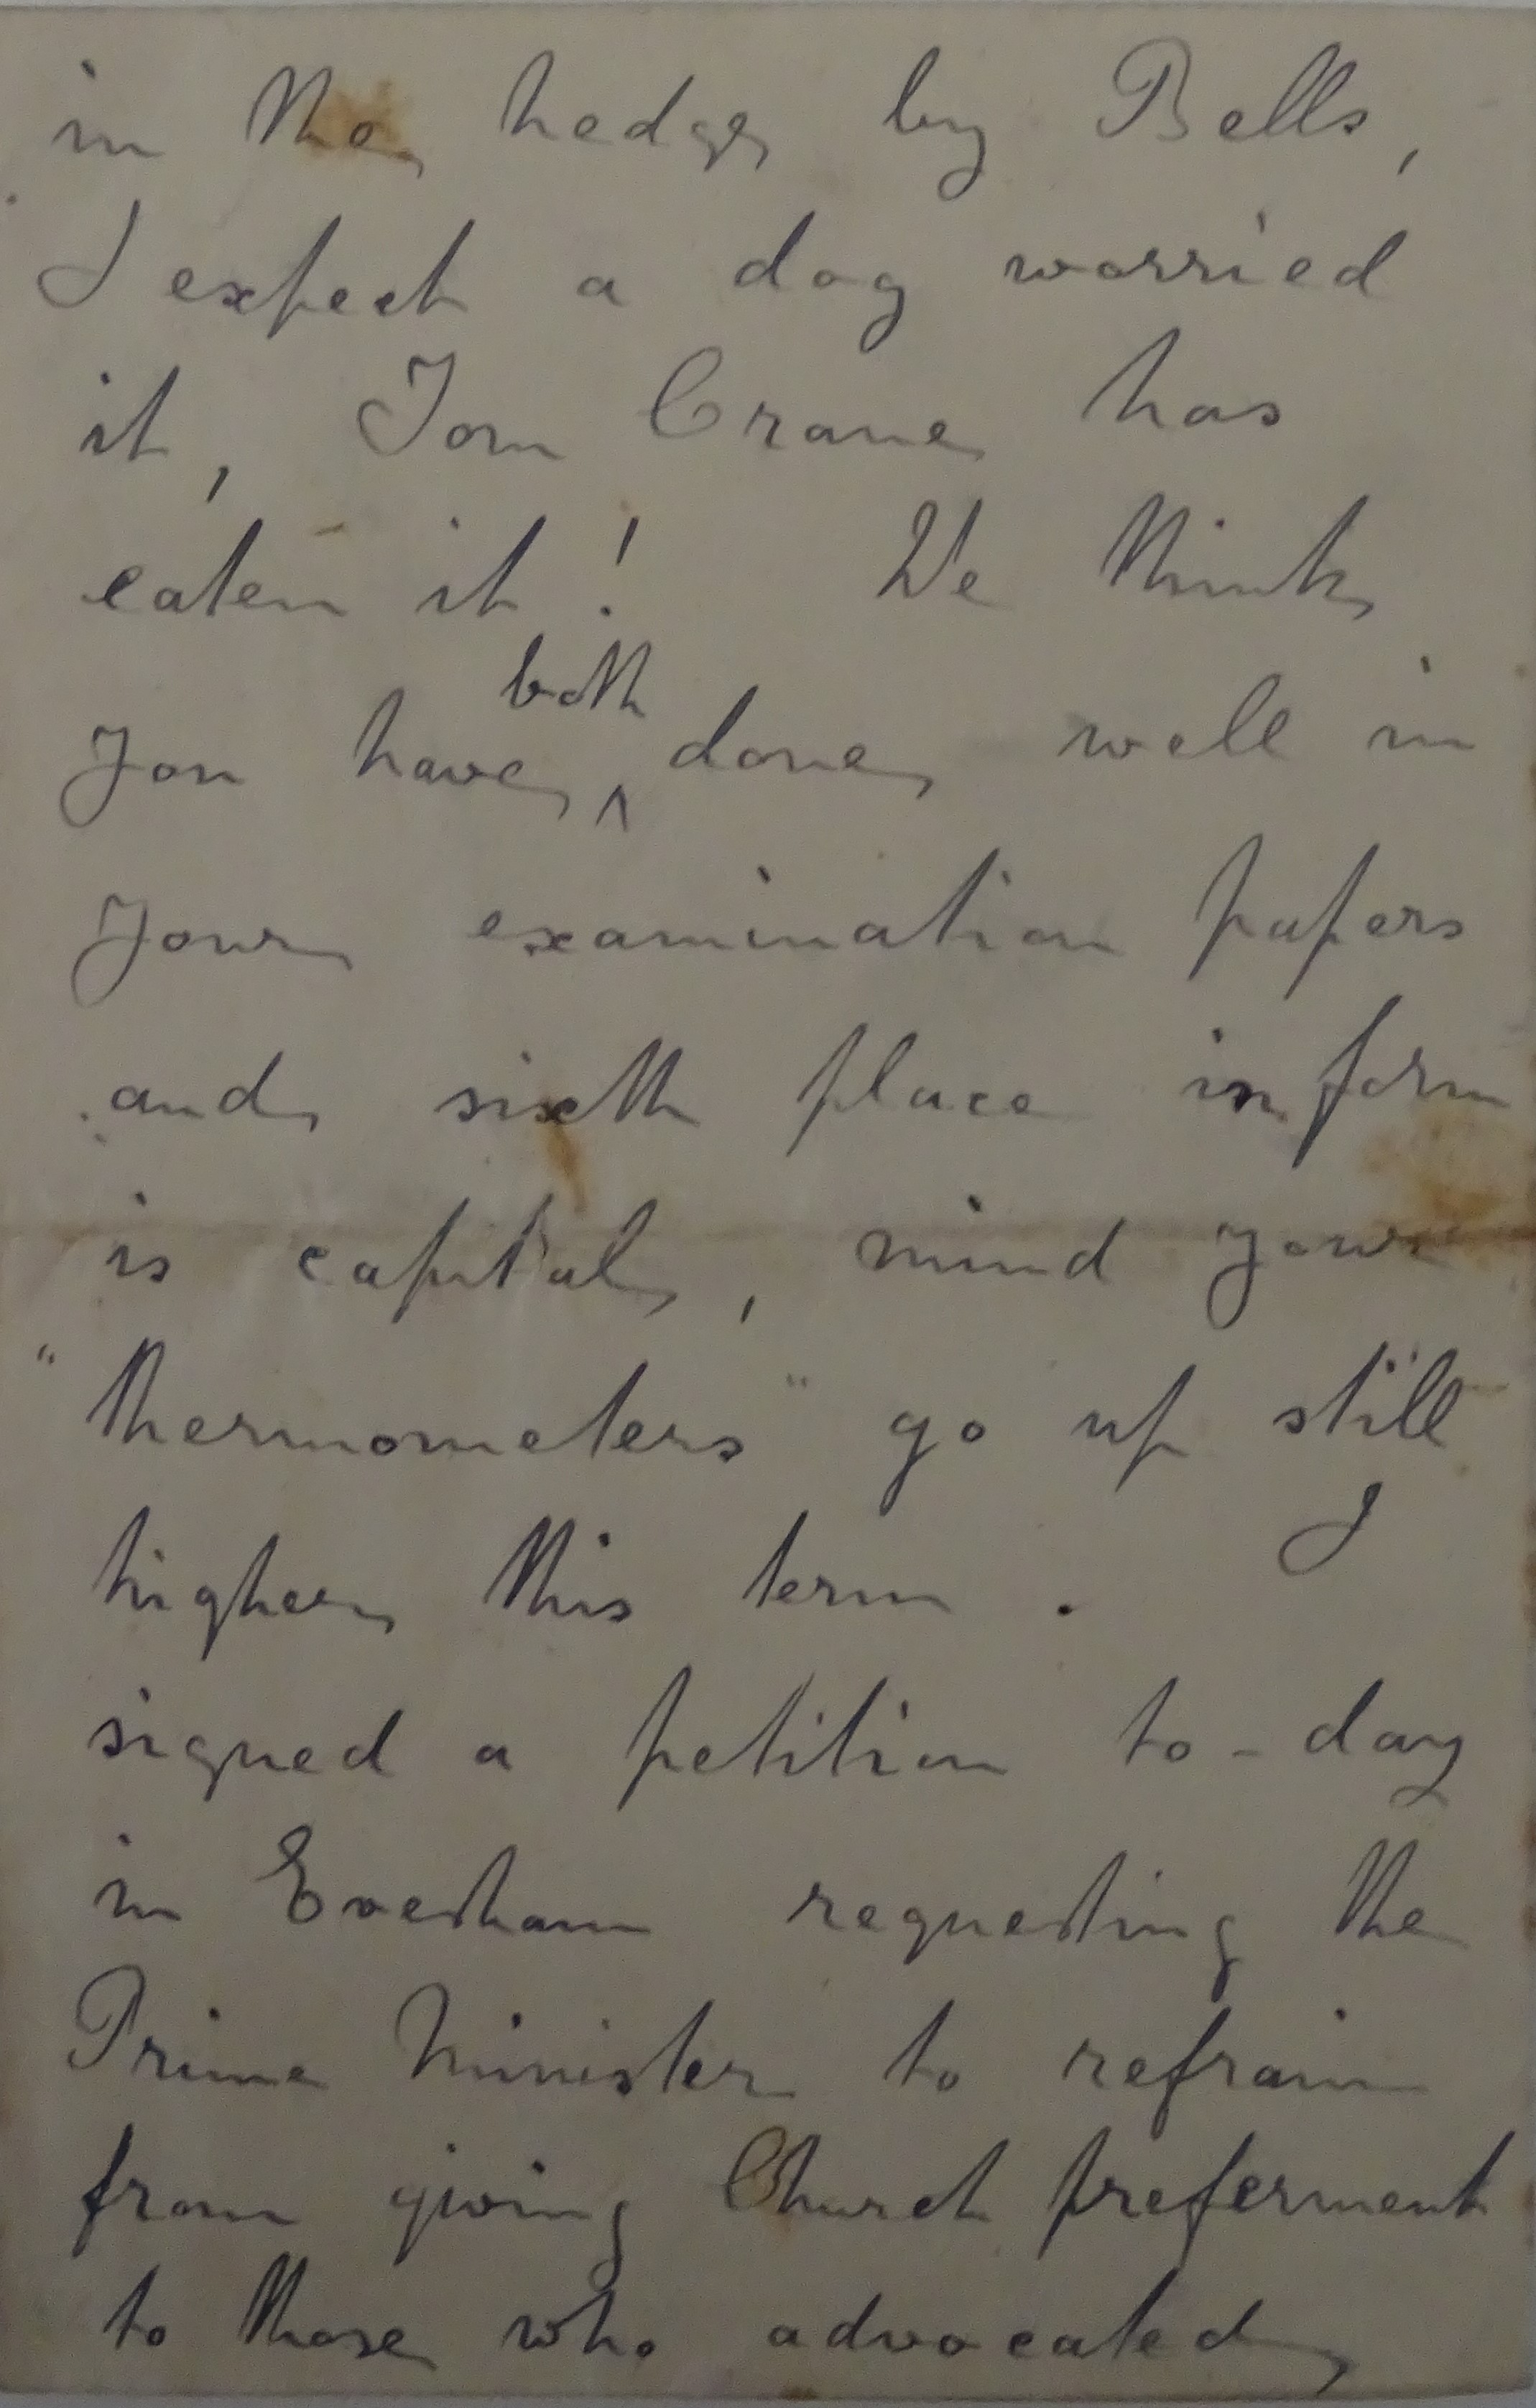 in the hedge by Bells,
I expect a dog worried
it, Tom Crane has
eaten it! We think
both
you have ^ done well in
your examination papers
and sixth place in form
is capital, mind your
"thermometers" go up still
higher this term. I
signed a petition to-day
in Evesham requesting the
Prime Minister to refrain
from giving Church preferment
to those who advocated